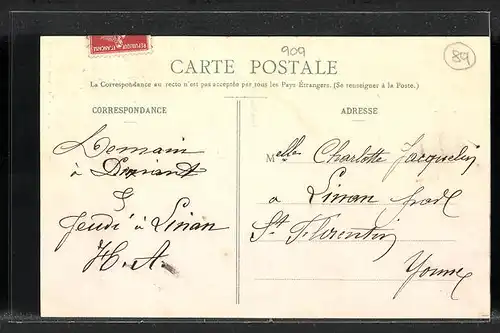 REPUBLIQUE FRANÇAISE
909
89
CARTE POSTALE
La Correspondance au recto n'est pas acceptée par tous les Pays Étrangers. (Se renseigner à la Poste.)
CORRESPONDANCE
ADRESSE
Demain
à
&
Jeudi à Linan
H. A.
Melle Charlotte Jacquelin
a Linan
St Florentin
Yonne